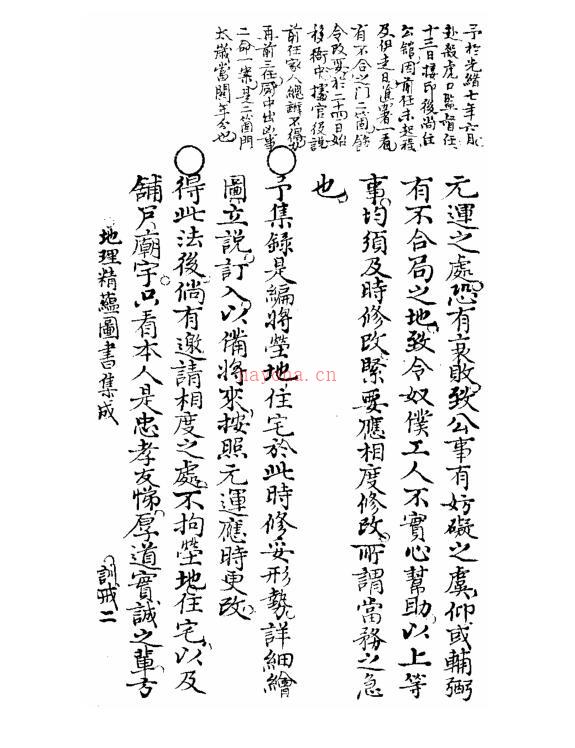 予於光緒七年六月
赴殺虎口監督任
十三日接印後尚住
公館因前任未起程
及伊走日進署一看
有不合之門二箇飭
令改要於二十四日始
移衙中據官役說
前任家人總辦不得力
再前三任局中出凶事
二命一案是二箇門
太歲當關年分也
元運之處恐有衰敗致公事有妨礙之虞仰或輔弼
有不合局之地致令奴僕工人不實心幫助以上等
事均須及時修改緊要應相度修改所謂當務之急
也
〇予集錄是編將塋地住宅於此時修妥形勢詳細繪
圖立說訂入以備將來按照元運應時更改
〇得此法後倘有邀請相度之處不拘塋地住宅以及
舖戶廟宇只看本人是忠孝友悌厚道實誠之輩方
地理精蘊圖書集成
訓戒二
nayona.cn